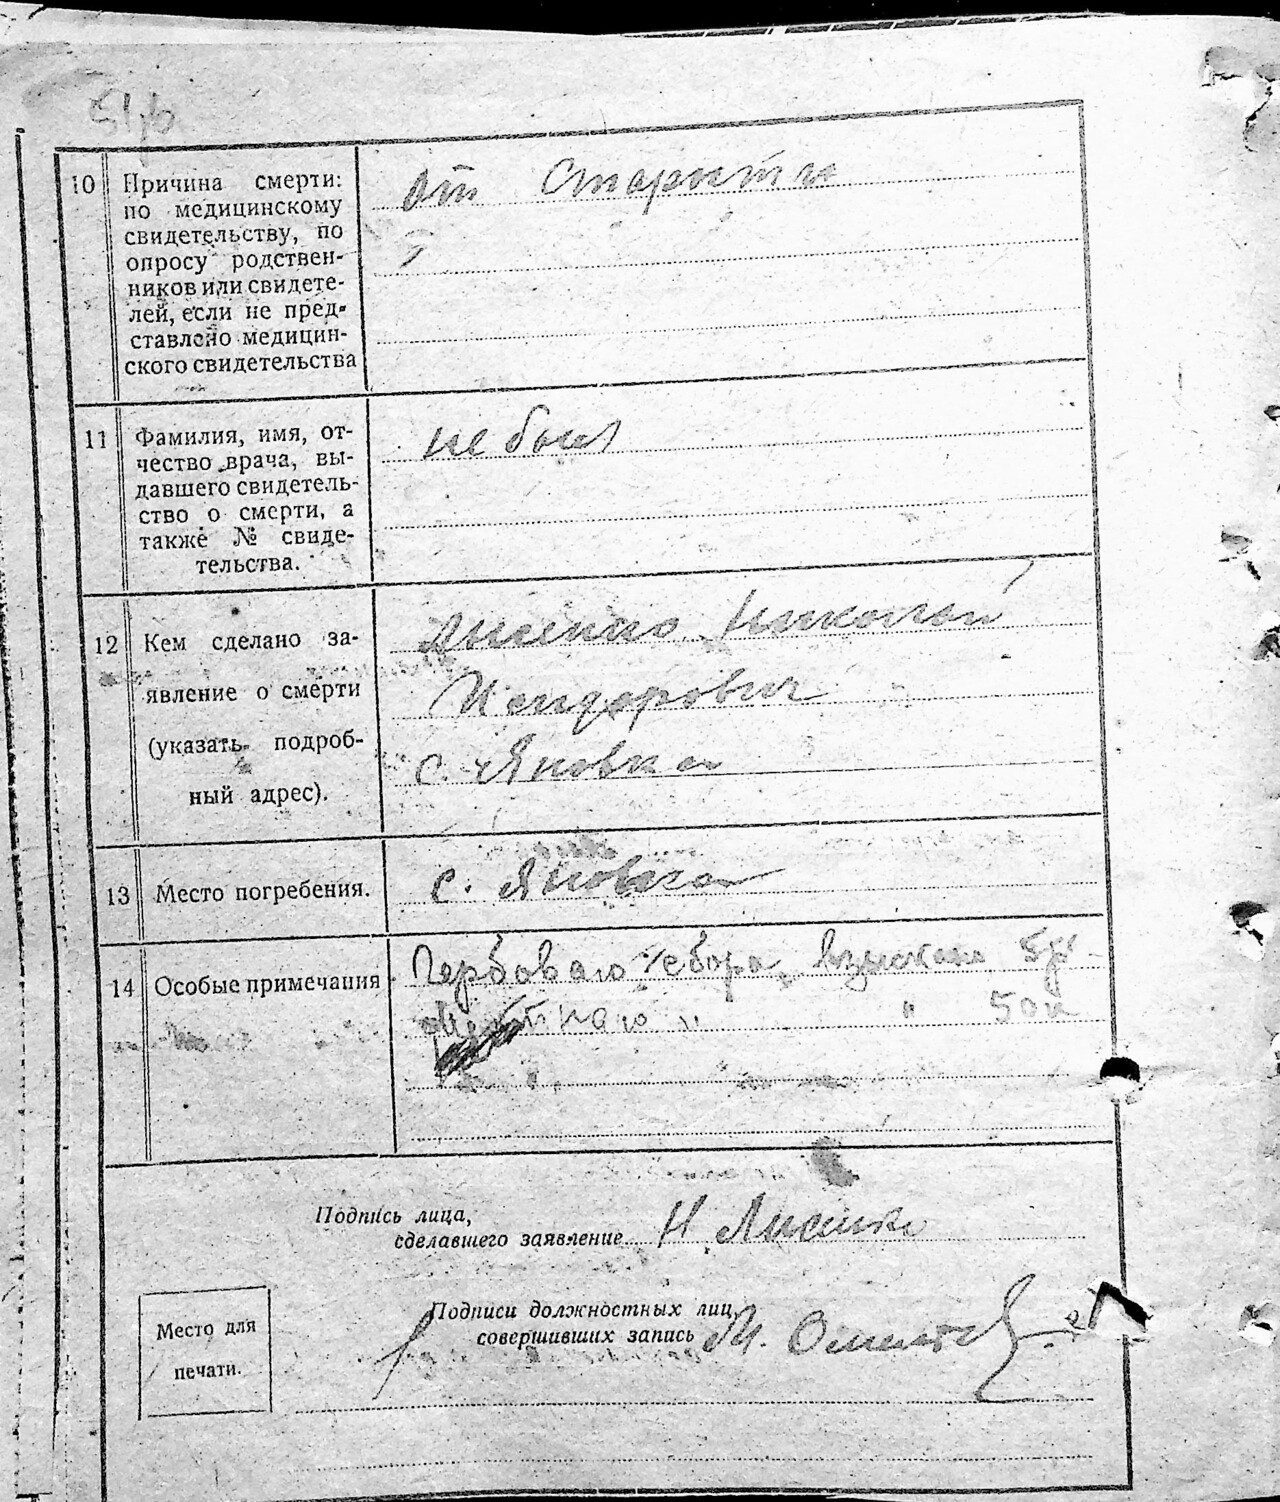 10
Причина смерти:
по медицинскому
свидетельству, по
опросу родствен-
ников или свидете-
лей, если не пред-
ставлено медицин-
ского свидетельства
от старости
11
Фамилия, имя, от-
чество врача, вы-
давшего свидетель-
ство о смерти, а
также № свиде-
тельства.
не был
12
Кем сделано за-
явление о смерти
(указать подроб-
ный адрес).
Лисенко Николай
Исидорович
с. Яновка
13
Место погребения.
с. Яновка
14
Особые примечания
Гербоваго сбора взыскано 5р
" " 50к
Подпись лица,
сделавшего заявление Н Лисенко
Подписи должностных лиц,
совершивших запись
Место для
печати.